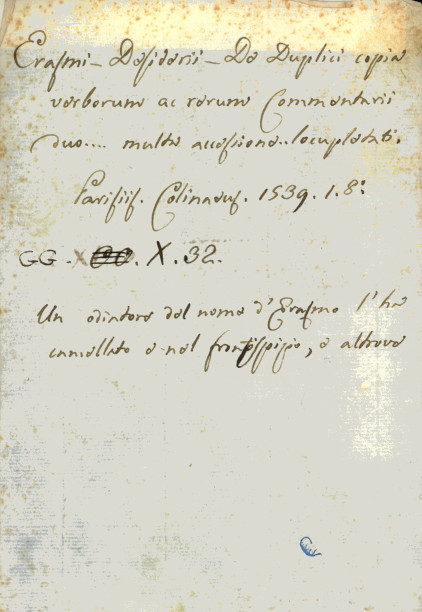 Erasmi - Desiderii - De Duplici copia
verborum ac rerum Commentarii
duo.... multa accessione..locupletati.
Parisiis. Colinaeus. 1539. 1. 8:
GG. X. 32.
Un odiatore del nome d'Erasmo l'ha
cancellato e nel frontispizio, e altrove